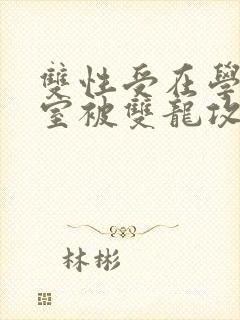 雙性受在學
室被雙龍攻
林彬